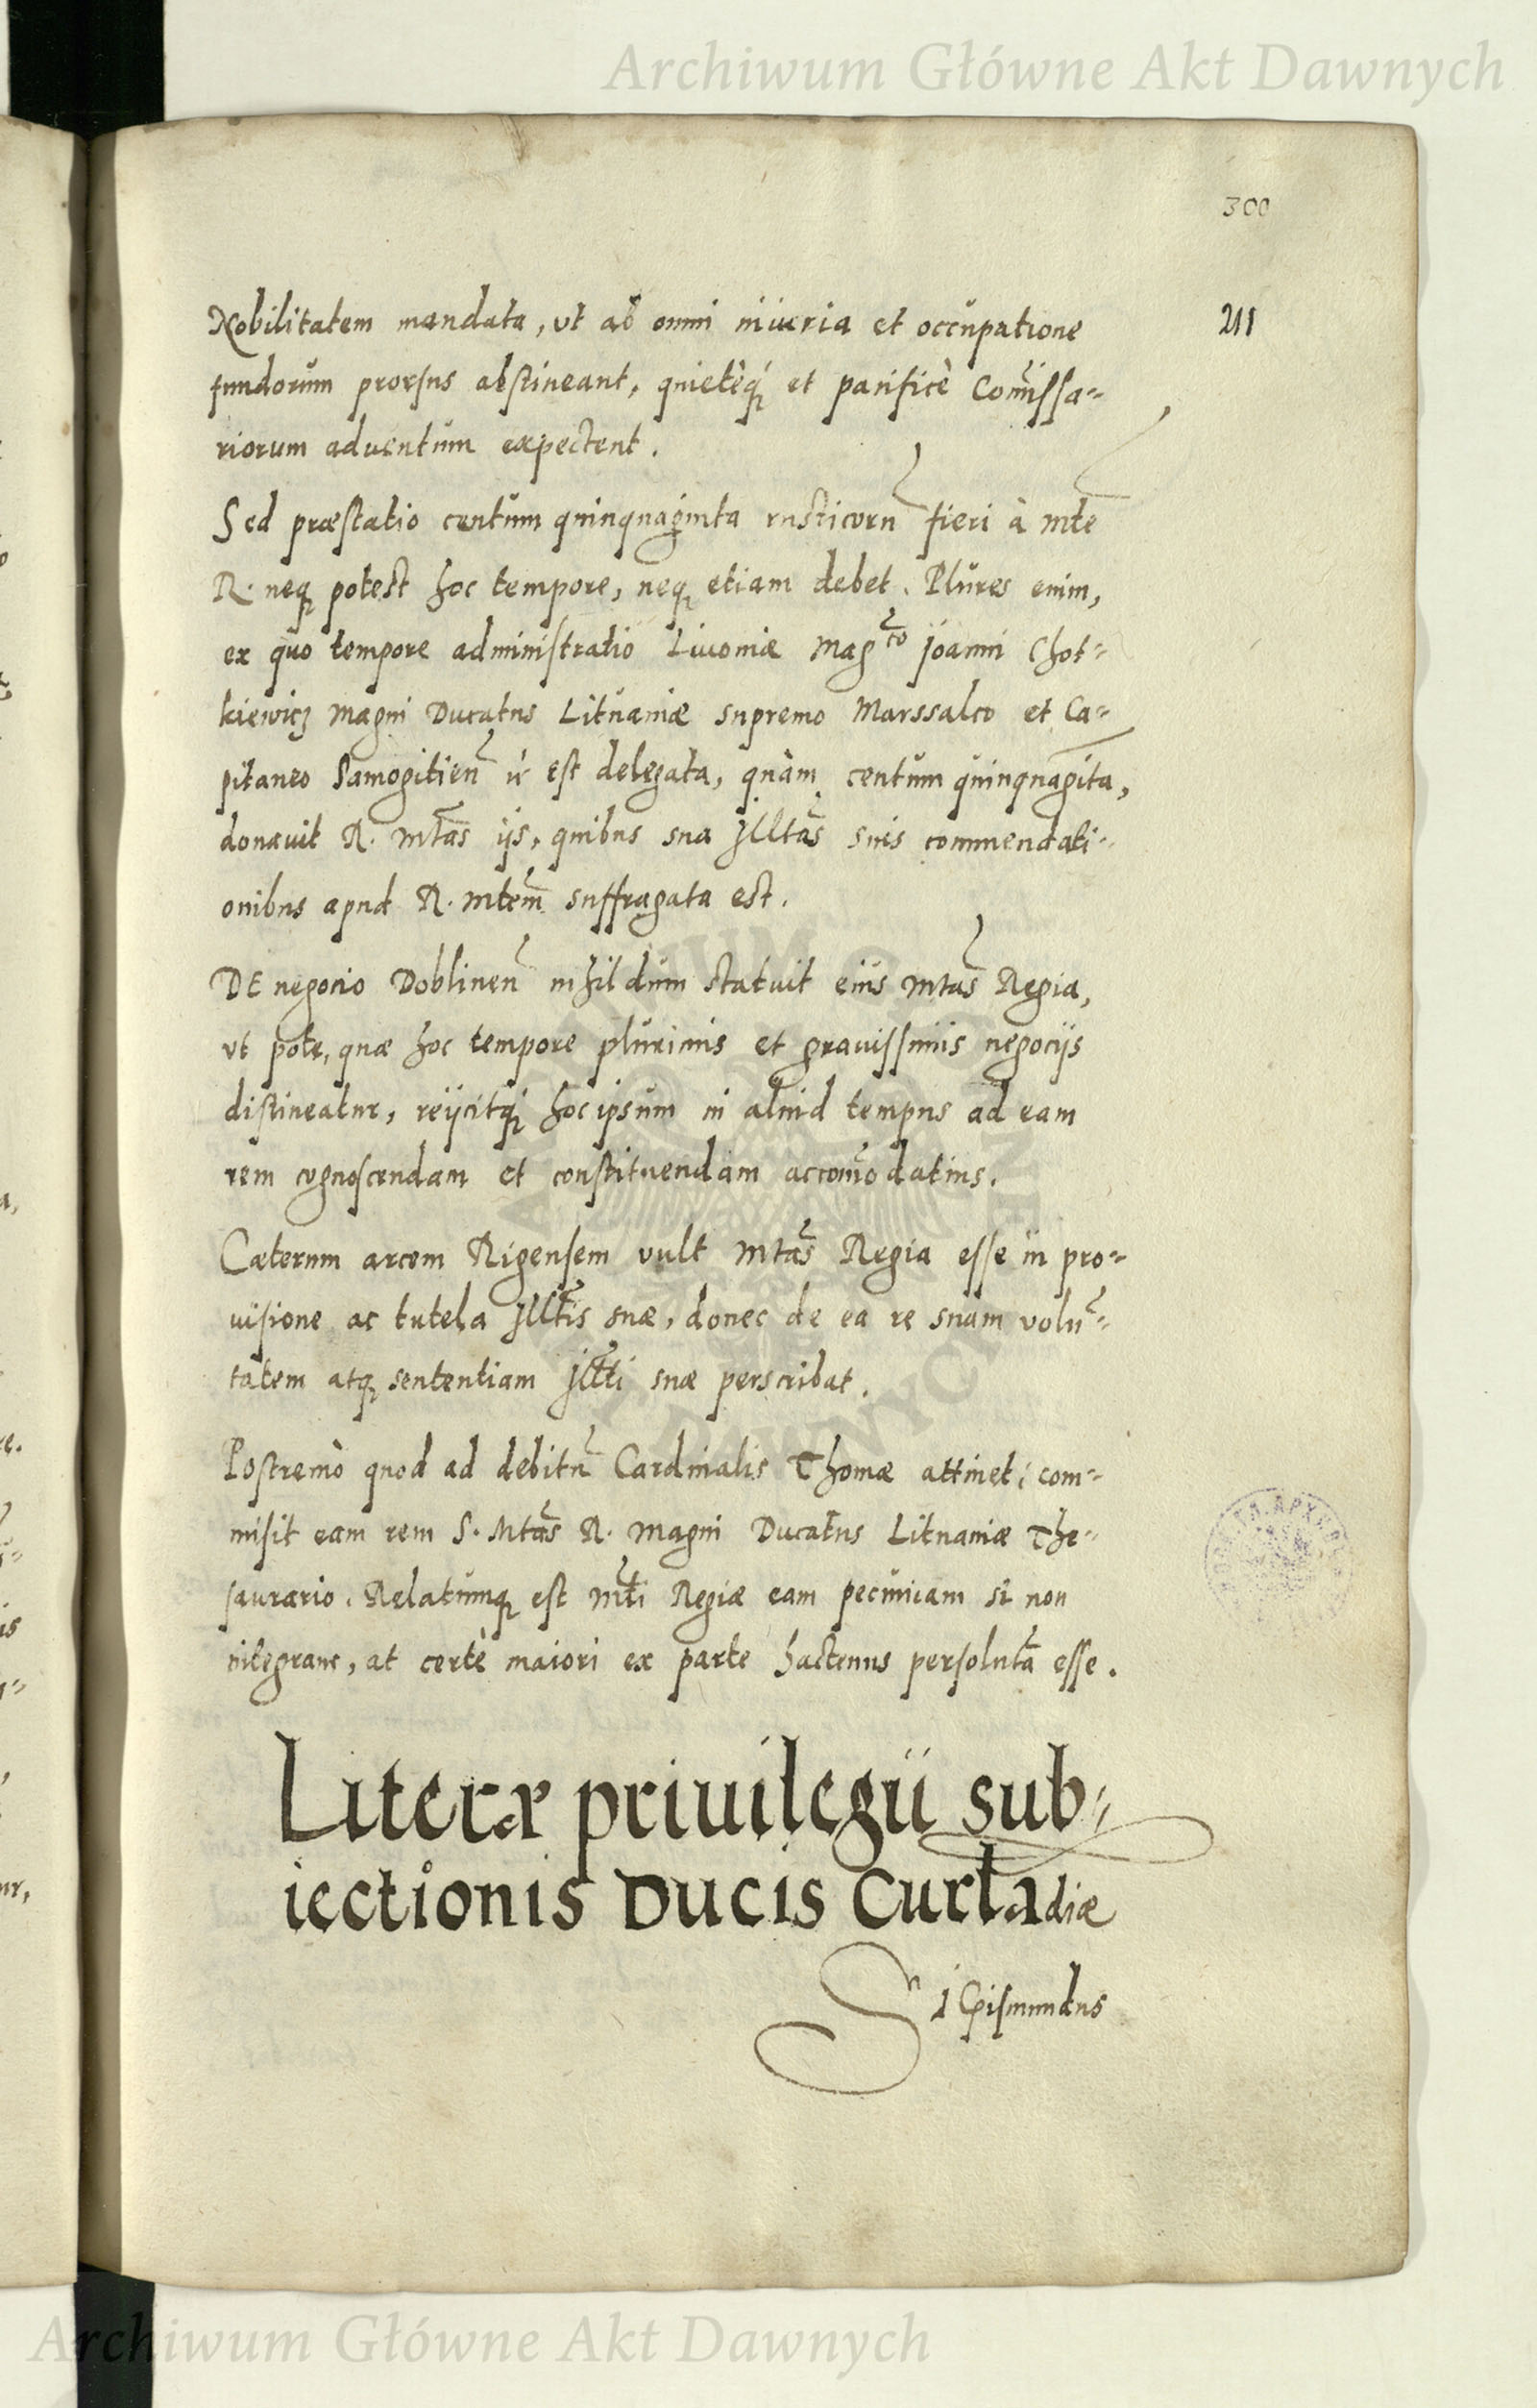 Archiwum Główne Akt Dawnych
300
211
Nobilitatem mandata, vt ab omni iniuria et occupatione
fundorum prorsus abstineant, quietèq́; et pacificè Com̃issa=
riorum aduentum expectent.
Sed præstatio centum quinquaginta rusticorũ fieri à Mte
R. neq; potest hoc tempore, neq; etiam debet. Plures enim,
ex quo tempore administratio Liuoniæ Magco Joanni Chot=
kiewicz Magni Ducatus Lituaniæ supremo Marssalco et Ca=
pitaneo Samogitien̄ est delegata, quàm centum quinquagīta,
donauit R. Mtas ijs, quibus sua Jlltas suis commendati=
onibus apud R. Mtem suffragata est.
DE negocio Doblinen̄ nihil dum statuit eius Mtas Regia,
vt pote, quæ hoc tempore plurimis et grauissimis negocijs
distineatur, reijcitq́; hoc ipsum in aliud tempus ad eam
rem cognoscendam et constituendam accom̃odatius.
Cæterum arcem Rigensem vult Mtas Regia esse in pro=
uisione ac tutela Jlltis suæ, donec de ea re suam volũ=
tatem atq; sententiam Jllti suæ perscribat.
Postremò quod ad debitũ Cardinalis Thomæ attinet; com=
misit eam rem S. Mtas R. Magni Ducatus Lituaniæ The=
saurario. Relatumq; est Mti Regiæ eam pecuniam si non
integram, at certè maiori ex parte hactenus persolutā esse.
Literæ priuilegii sub=
iectionis Ducis Curladiæ
SiGismundus
Archiwum Główne Akt Dawnych